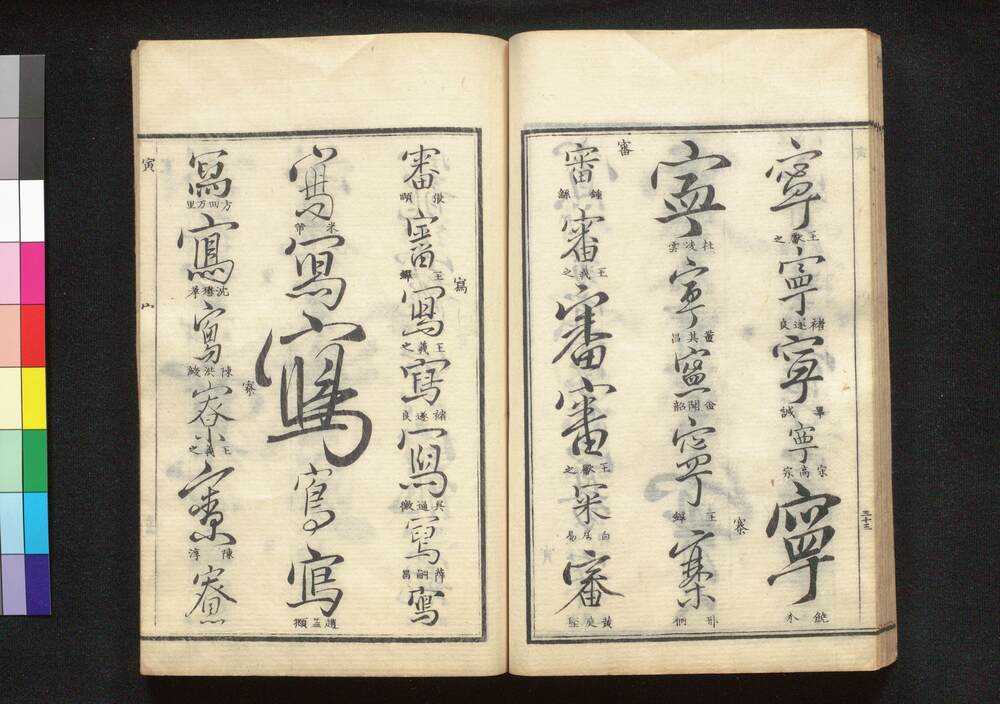 三十三
寧 王獻之
寧 褚遂良
寧 畢誠
寧 宋高宗
寧 饒
寧 杜凌雲
寧 董其昌
寧 金韶
寧 王鐸
寨
寨 邢侗
審
審 鍾繇
審 王羲之
審
審 王獻之
宷 白居易
審 黃庭堅
審 張
審 王鐸
寫
寫 王羲之
寫 褚遂良
寫 吳通微
寫 薛嗣昌
寫
寫 米芾
寫
寫
寫
寫 趙孟頫
寫 方回万里
寫 沈
寫 陳洪綬
寮
寮 王羲之
寮 陳淳
寮
寅